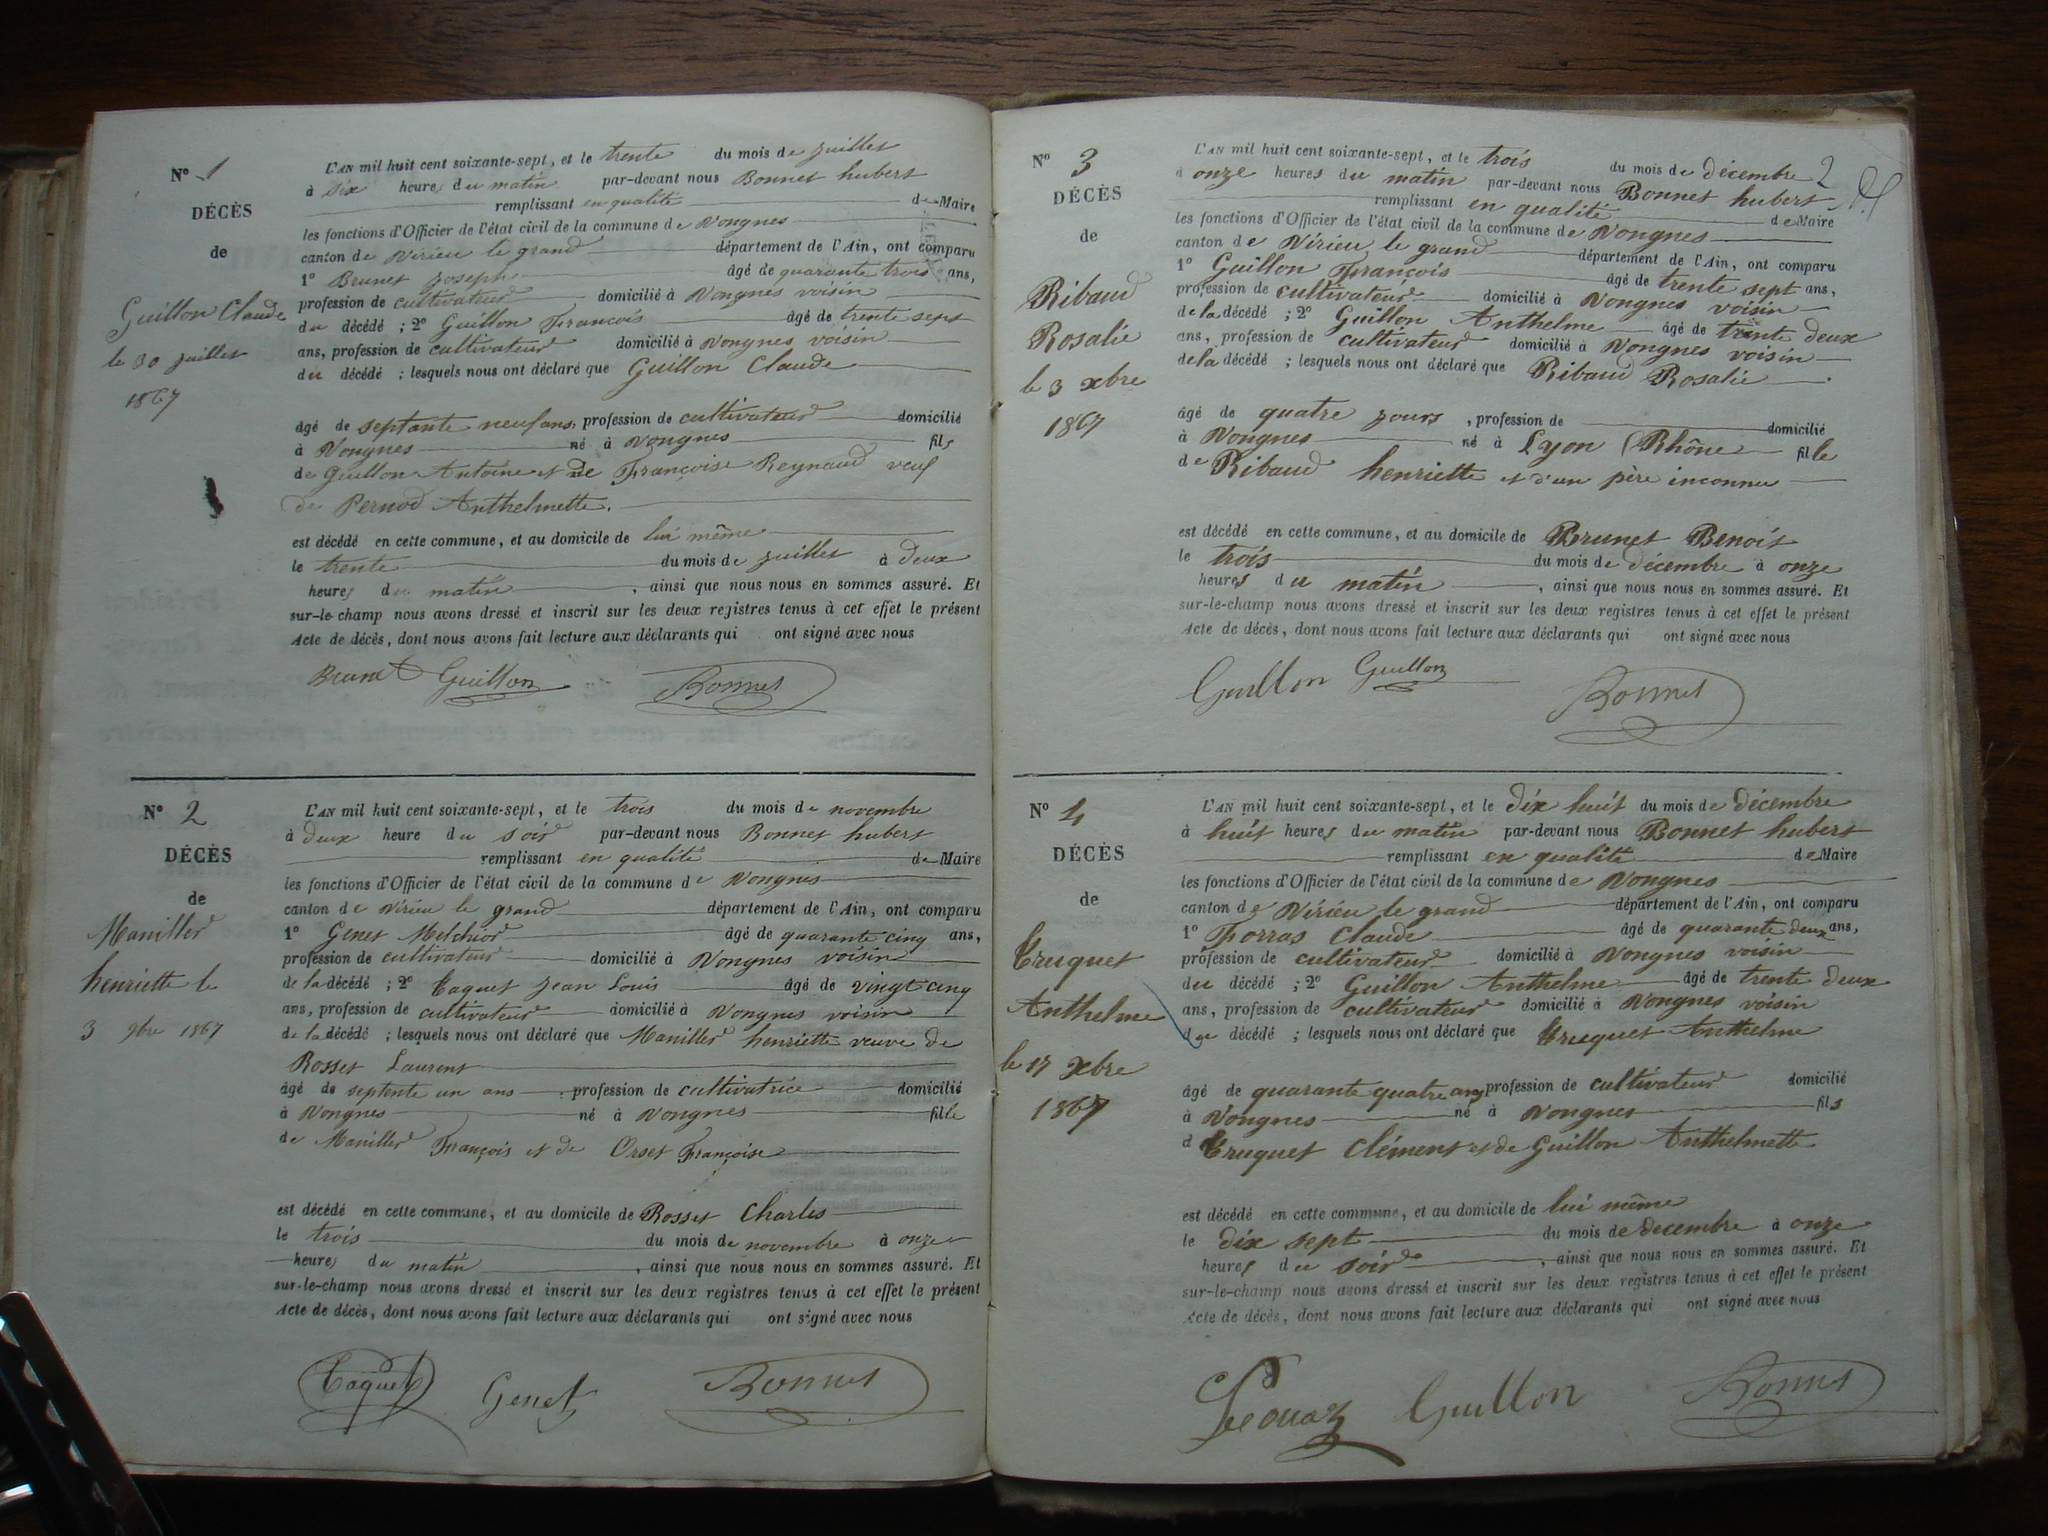 N° 1
DÉCÈS
de
Guillon Claude
le 30 juillet
1867
L'AN mil huit cent soixante-sept, et le trente du mois de juillet
à six heures du matin par-devant nous Bonnet hubert
remplissant en qualité de Maire
les fonctions d'Officier de l'état civil de la commune de Vongnes
canton de Virieu le grand département de l'Ain, ont comparu
1° Brunet Joseph âgé de quarante trois ans,
profession de cultivateur domicilié à Vongnes voisin
du décédé ; 2° Guillon François âgé de trente sept
ans, profession de cultivateur domicilié à Vongnes voisin
du décédé ; lesquels nous ont déclaré que Guillon Claude
âgé de septante neuf ans, profession de cultivateur domicilié
à Vongnes né à Vongnes fils
de Guillon Antoine et de Françoise Reynaud veuf
de Pernod Anthelmette.
est décédé en cette commune, et au domicile de lui même
le trente du mois de juillet à deux
heures du matin , ainsi que nous nous en sommes assuré. Et
sur-le-champ nous avons dressé et inscrit sur les deux registres tenus à cet effet le présent
Acte de décès, dont nous avons fait lecture aux déclarants qui ont signé avec nous
Brunet Guillon Bonnet
N° 2
DÉCÈS
de
Maniller
henriette le
3 9bre 1867
L'AN mil huit cent soixante-sept, et le trois du mois de novembre
à deux heure du soir par-devant nous Bonnet hubert
remplissant en qualité de Maire
les fonctions d'Officier de l'état civil de la commune de Vongnes
canton de Virieu le grand département de l'Ain, ont comparu
1° Genet Melchior âgé de quarante cinq ans,
profession de cultivateur domicilié à Vongnes voisin
de la décédé ; 2° Taquet Jean Louis âgé de vingt cinq
ans, profession de cultivateur domicilié à Vongnes voisin
de la décédé ; lesquels nous ont déclaré que Maniller henriette veuve de
Rosset Laurent
âgé de septente un ans profession de cultivatrice domicilié
à Vongnes né à Vongnes fille
de Maniller François et de Orset Françoise
est décédé en cette commune, et au domicile de Rosset Charles
le trois du mois de novembre à onze
heures du matin , ainsi que nous nous en sommes assuré. Et
sur-le-champ nous avons dressé et inscrit sur les deux registres tenus à cet effet le présent
Acte de décès, dont nous avons fait lecture aux déclarants qui ont signé avec nous
Taquet Genet Bonnet
2
N° 3
DÉCÈS
de
Ribaud
Rosalie
le 3 xbre
1867
L'AN mil huit cent soixante-sept, et le trois du mois de décembre
à onze heures du matin par-devant nous Bonnet hubert
remplissant en qualité de Maire
les fonctions d'Officier de l'état civil de la commune de Vongnes
canton de Virieu le grand département de l'Ain, ont comparu
1° Guillon François âgé de trente sept ans,
profession de cultivateur domicilié à Vongnes voisin
de la décédé ; 2° Guillon Anthelme âgé de trente deux
ans, profession de cultivateur domicilié à Vongnes voisin
de la décédé ; lesquels nous ont déclaré que Ribaud Rosalie
âgé de quatre jours , profession de domicilié
à Vongnes né à Lyon (Rhône fille
de Ribaud henriette et d'un père inconnu
est décédé en cette commune, et au domicile de Brunet Benoit
le trois du mois de décembre à onze
heures du matin , ainsi que nous nous en sommes assuré. Et
sur-le-champ nous avons dressé et inscrit sur les deux registres tenus à cet effet le présent
Acte de décès, dont nous avons fait lecture aux déclarants qui ont signé avec nous
Guillon Guillon Bonnet
N° 4
DÉCÈS
de
Truquet
Anthelme
le 17 xbre
1867
L'AN mil huit cent soixante-sept, et le dix huit du mois de décembre
à huit heures du matin par-devant nous Bonnet hubert
remplissant en qualité de Maire
les fonctions d'Officier de l'état civil de la commune de Vongnes
canton de Virieu le grand département de l'Ain, ont comparu
1° Forras Claude âgé de quarante deux ans,
profession de cultivateur domicilié à Vongnes voisin
du décédé ; 2° Guillon Anthelme âgé de trente deux
ans, profession de cultivateur domicilié à Vongnes voisin
du décédé ; lesquels nous ont déclaré que Truquet Anthelme
âgé de quarante quatre ans profession de cultivateur domicilié
à Vongnes né à Vongnes fils
d Truquet Clément et de Guillon Anthelmette
est décédé en cette commune, et au domicile de lui même
le dix sept du mois de decembre à onze
heures du soir , ainsi que nous nous en sommes assuré. Et
sur-le-champ nous avons dressé et inscrit sur les deux registres tenus à cet effet le présent
Acte de décès, dont nous avons fait lecture aux déclarants qui ont signé avec nous
Guillon Bonnet